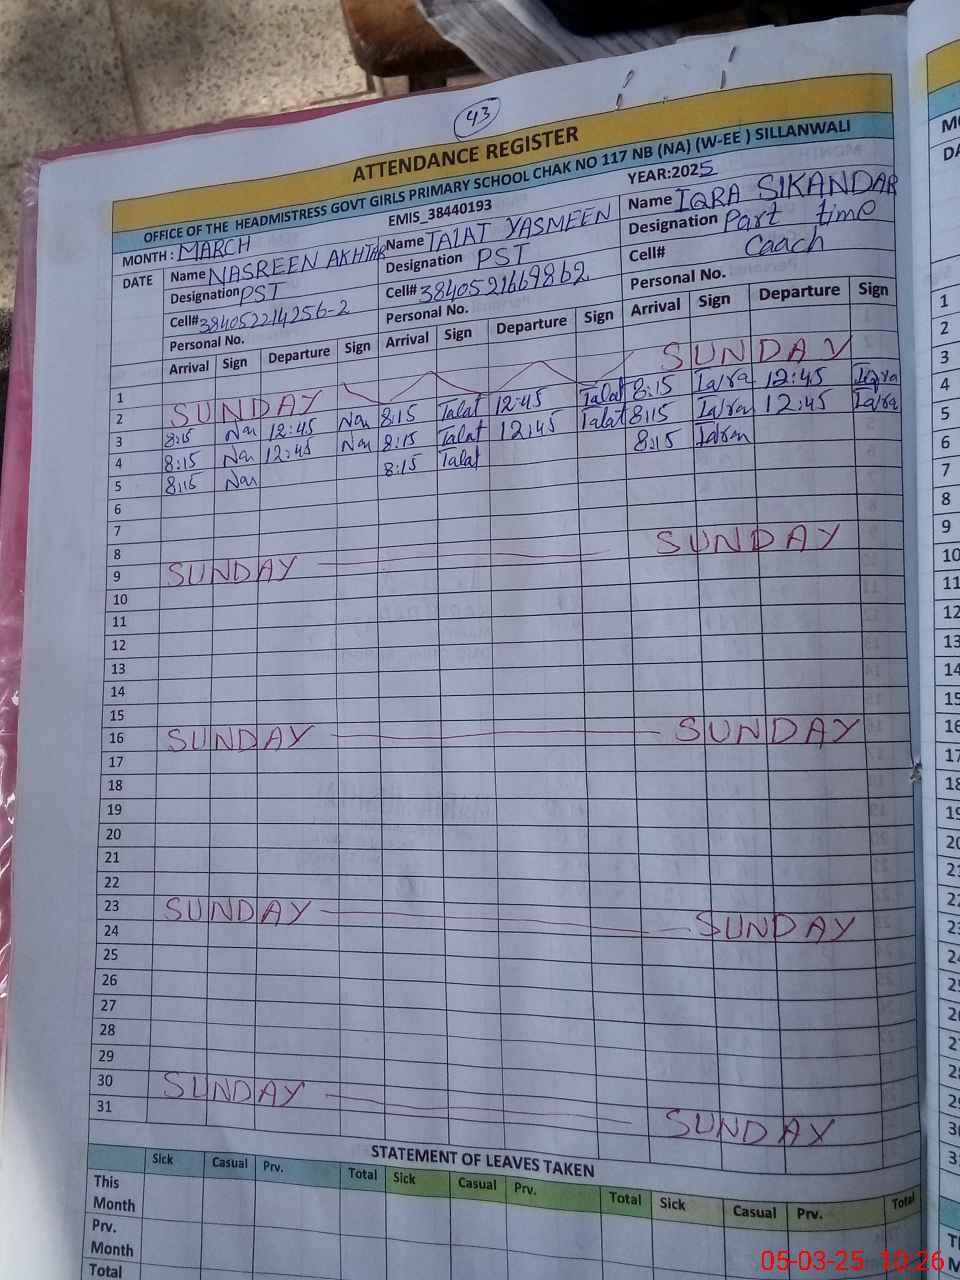 43
ATTENDANCE REGISTER
OFFICE OF THE HEADMISTRESS GOVT GIRLS PRIMARY SCHOOL CHAK NO 117 NB (NA) (W-EE ) SILLANWALI
MONTH : MARCH EMIS_38440193 YEAR:2025
DATE Name NASREEN AKHTAR Name TALAT YASMEEN Name IQRA SIKANDAR
Designation PST Designation PST Designation Part time Coach
Cell# 384052214256-2 Cell# 3840521669862 Cell#
Personal No. Personal No. Personal No.
Arrival Sign Departure Sign Arrival Sign Departure Sign Arrival Sign Departure Sign
1
2 SUNDAY SUNDAY
3 8:15 Nas 12:45 Nas 8:15 Talat 12:45 Talat 8:15 Iqra 12:45 Iqra
4 8:15 Nas 12:45 Nas 8:15 Talat 12:45 Talat 8:15 Iqra 12:45 Iqra
5 8:15 Nas 8:15 Talat 8:15 Iqra
6
7
8
9 SUNDAY SUNDAY
10
11
12
13
14
15
16 SUNDAY SUNDAY
17
18
19
20
21
22
23 SUNDAY SUNDAY
24
25
26
27
28
29
30 SUNDAY SUNDAY
31
STATEMENT OF LEAVES TAKEN
Sick Casual Prv. Total Sick Casual Prv. Total Sick Casual Prv. Total
This Month
Prv. Month
Total
05-03-25 10:26